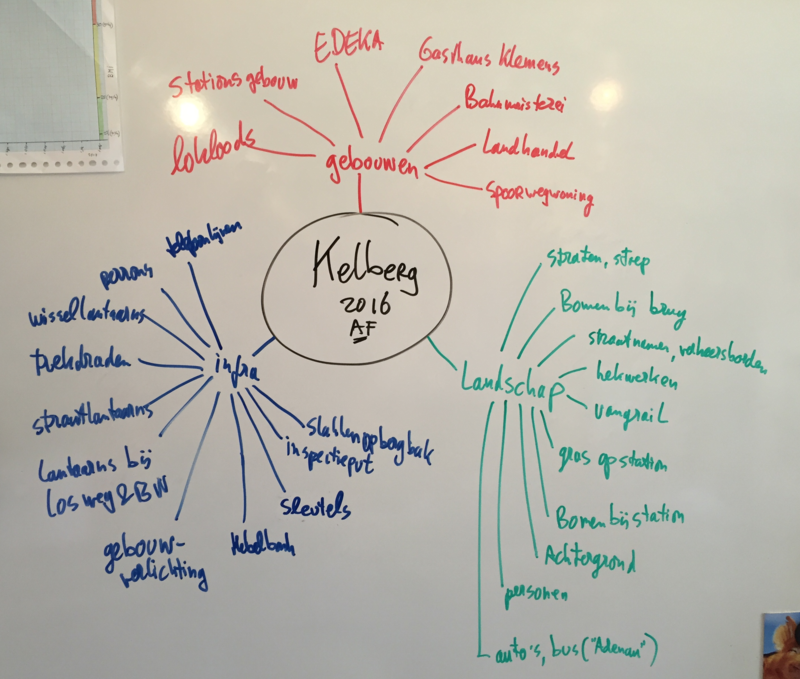 EDEKA
Gasthaus Klemens
Stationsgebouw
Bahnmeisterei
lokloods
Landhandel
gebouwen
Spoorwegwoning
Kelberg
2016
AF
telefoonlijnen
perrons
wissellantaarns
trekdraden
infra
straatlantaarns
lantaarns bij
losweg & BW
gebouw-
verlichting
Hebelbank
sleutels
inspectieput
opbergbak
straten, stoep
Bomen bij brug
straatnamen, verkeersborden
hekwerken
Landschap
vangrail
gras op station
Bomen bij station
Achtergrond
personen
auto's, bus ("Adenau")